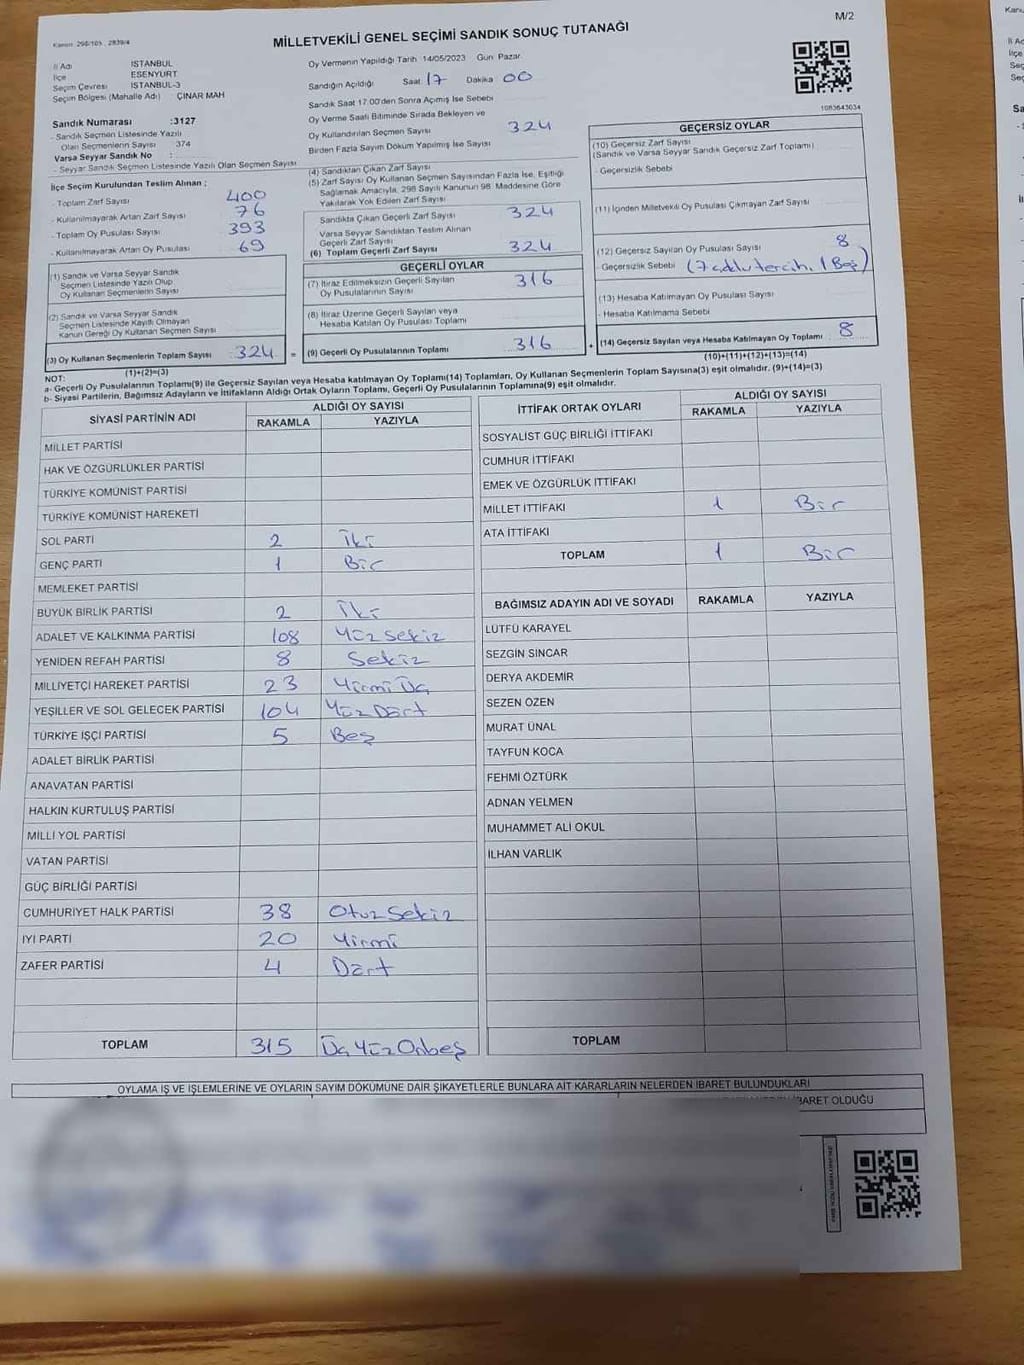 Kanun: 298/105 , 2839/4
MİLLETVEKİLİ GENEL SEÇİMİ SANDIK SONUÇ TUTANAĞI
M/2
İl Adı İSTANBUL
İlçe ESENYURT
Seçim Çevresi İSTANBUL-3
Seçim Bölgesi (Mahalle Adı) : ÇINAR MAH
Sandık Numarası :3127
- Sandık Seçmen Listesinde Yazılı
Olan Seçmenlerin Sayısı : 374
Varsa Seyyar Sandık No :
- Seyyar Sandık Seçmen Listesinde Yazılı Olan Seçmen Sayısı
İlçe Seçim Kurulundan Teslim Alınan ;
- Toplam Zarf Sayısı 400
- Kullanılmayarak Artan Zarf Sayısı 76
- Toplam Oy Pusulası Sayısı 393
- Kullanılmayarak Artan Oy Pusulası 69
(1) Sandık ve Varsa Seyyar Sandık
Seçmen Listesinde Yazılı Olup
Oy Kullanan Seçmenlerin Sayısı
(2) Sandık ve Varsa Seyyar Sandık
Seçmen Listesinde Kaydı Olmayan
Kanun Gereği Oy Kullanan Seçmen Sayısı
(3) Oy Kullanan Seçmenlerin Toplam Sayısı 324 =
(1)+(2)=(3)
Oy Vermenin Yapıldığı Tarih 14/05/2023 Gün Pazar
Sandığın Açıldığı Saat 17 Dakika 00
Sandık Saat 17.00'den Sonra Açımış İse Sebebi
Oy Verme Saati Bitiminde Sırada Bekleyen ve
Oy Kullandırılan Seçmen Sayısı 324
Birden Fazla Sayım Döküm Yapılmış İse Sayısı
(4) Sandıktan Çıkan Zarf Sayısı
(5) Zarf Sayısı Oy Kullanan Seçmen Sayısından Fazla İse, Eşitliği
Sağlamak Amacıyla, 298 Sayılı Kanunun 98. Maddesine Göre
Yakılarak Yok Edilen Zarf Sayısı
Sandıkta Çıkan Geçerli Zarf Sayısı 324
Varsa Seyyar Sandıktan Teslim Alınan
Geçerli Zarf Sayısı
(6) Toplam Geçerli Zarf Sayısı 324
GEÇERLİ OYLAR
(7) İtiraz Edilmeksizin Geçerli Sayılan
Oy Pusulalarının Sayısı 316
(8) İtiraz Üzerine Geçerli Sayılan veya
Hesaba Katılan Oy Pusulası Toplamı
(9) Geçerli Oy Pusulalarının Toplamı 316 +
1083643034
GEÇERSİZ OYLAR
(10) Geçersiz Zarf Sayısı
(Sandık ve Varsa Seyyar Sandık Geçersiz Zarf Toplamı)
- Geçersizlik Sebebi
(11) İçinden Milletvekili Oy Pusulası Çıkmayan Zarf Sayısı
(12) Geçersiz Sayılan Oy Pusulası Sayısı 8
- Geçersizlik Sebebi (7 adılu tercih, 1 Boş)
(13) Hesaba Katılmayan Oy Pusulası Sayısı
- Hesaba Katılmama Sebebi
(14) Geçersiz Sayılan veya Hesaba Katılmayan Oy Toplamı 8
(10)+(11)+(12)+(13)=(14)
NOT:
a- Geçerli Oy Pusulalarının Toplamı(9) ile Geçersiz Sayılan veya Hesaba katılmayan Oy Toplamı(14) Toplamları, Oy Kullanan Seçmenlerin Toplam Sayısına(3) eşit olmalıdır. (9)+(14)=(3)
b- Siyasi Partilerin, Bağımsız Adayların ve İttifakların Aldığı Ortak Oyların Toplamı, Geçerli Oy Pusulalarının Toplamına(9) eşit olmalıdır.
SİYASİ PARTİNİN ADI ALDIĞI OY SAYISI
RAKAMLA YAZIYLA
MİLLET PARTİSİ
HAK VE ÖZGÜRLÜKLER PARTİSİ
TÜRKİYE KOMÜNİST PARTİSİ
TÜRKİYE KOMÜNİST HAREKETİ
SOL PARTİ 2 İki
GENÇ PARTİ 1 Bir
MEMLEKET PARTİSİ
BÜYÜK BİRLİK PARTİSİ 2 İki
ADALET VE KALKINMA PARTİSİ 108 Yüz sekiz
YENİDEN REFAH PARTİSİ 8 Sekiz
MİLLİYETÇİ HAREKET PARTİSİ 23 Yirmi Üç
YEŞİLLER VE SOL GELECEK PARTİSİ 104 Yüz Dört
TÜRKİYE İŞÇİ PARTİSİ 5 Beş
ADALET BİRLİK PARTİSİ
ANAVATAN PARTİSİ
HALKIN KURTULUŞ PARTİSİ
MİLLİ YOL PARTİSİ
VATAN PARTİSİ
GÜÇ BİRLİĞİ PARTİSİ
CUMHURİYET HALK PARTİSİ 38 Otuz Sekiz
İYİ PARTİ 20 Yirmi
ZAFER PARTİSİ 4 Dört
TOPLAM 315 Üç Yüz Onbeş
İTTİFAK ORTAK OYLARI ALDIĞI OY SAYISI
RAKAMLA YAZIYLA
SOSYALİST GÜÇ BİRLİĞİ İTTİFAKI
CUMHUR İTTİFAKI
EMEK VE ÖZGÜRLÜK İTTİFAKI
MİLLET İTTİFAKI 1 Bir
ATA İTTİFAKI
TOPLAM 1 Bir
BAĞIMSIZ ADAYIN ADI VE SOYADI RAKAMLA YAZIYLA
LÜTFÜ KARAYEL
SEZGİN SİNCAR
DERYA AKDEMİR
SEZEN ÖZEN
MURAT ÜNAL
TAYFUN KOCA
FEHMİ ÖZTÜRK
ADNAN YELMEN
MUHAMMET ALİ OKUL
İLHAN VARLIK
TOPLAM
OYLAMA İŞ VE İŞLEMLERİNE VE OYLARIN SAYIM DÖKÜMÜNE DAİR ŞİKAYETLERLE BUNLARA AİT KARARLARIN NELERDEN İBARET BULUNDUKLARI
İBARET OLDUĞU